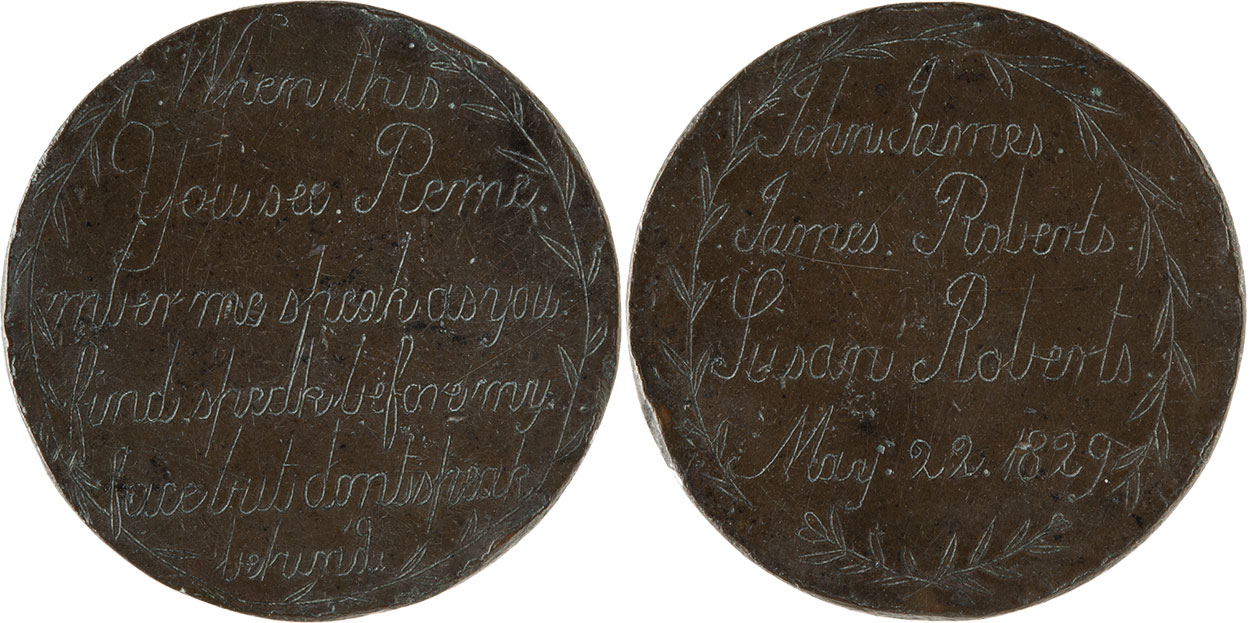 When this.
You see. Reme
mber me speak as you
find. speak before my.
face but dont speak
behind.
John. James.
James. Roberts.
Susan Roberts.
May. 22. 1829.